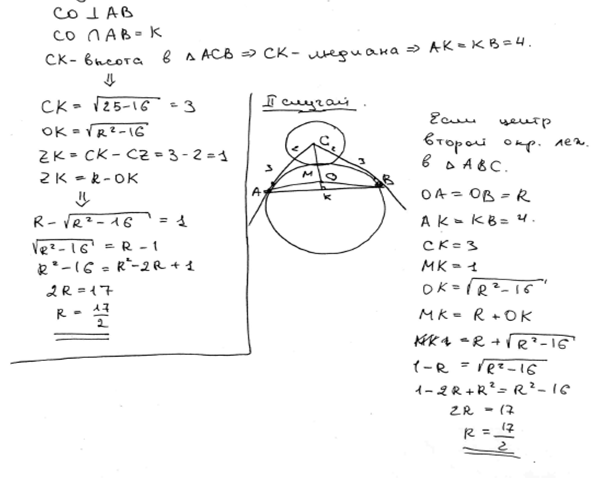 CO ⊥ AB
CO ∩ AB = K
CK - высота в △ ACB ⇒ CK - медиана ⇒ AK = KB = 4.
⇓
CK = √25-16 = 3
OK = √R²-16
ZK = CK - CZ = 3 - 2 = 1
ZK = R - OK
⇓
R - √R²-16 = 1
√R²-16 = R - 1
R² - 16 = R² - 2R + 1
2R = 17
R = 17/2
II случай.
C
2
2
3
3
M
O
A
B
K
Если центр
второй окр. леж.
в △ ABC.
OA = OB = R
AK = KB = 4.
CK = 3
MK = 1
OK = √R²-16
MK = R + OK
1 = R + √R²-16
1 - R = √R²-16
1 - 2R + R² = R² - 16
2R = 17
R = 17/2